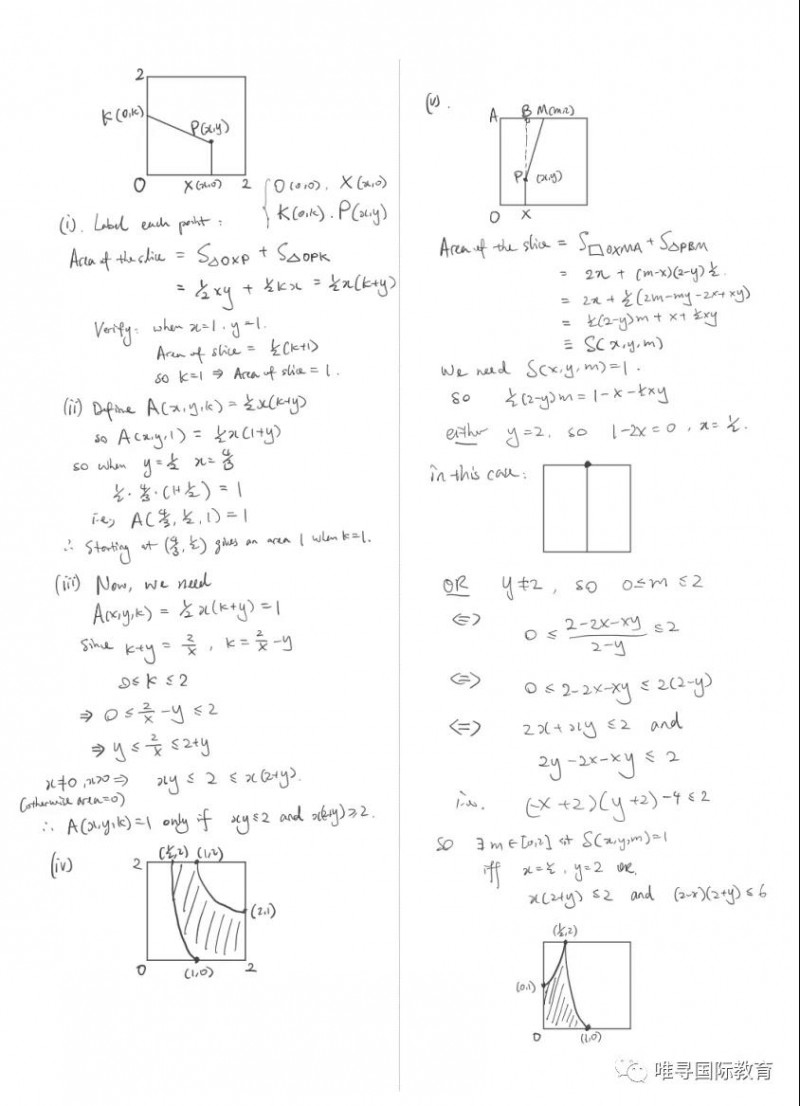 2
K(0,k)
P(x,y)
0
X(x,0)
2
(i). Label each point: { O(0,0), X(x,0)
K(0,k), P(x,y)
Area of the slice = S△OXP + S△OPK
= ½xy + ½kx = ½x(k+y)
Verify: when x=1, y=1.
Area of slice = ½(k+1)
so k=1 ⇒ Area of slice = 1.
(ii) Define A(x,y,k) = ½x(k+y)
so A(x,y,1) = ½x(1+y)
so when y=½ x=4/3
½·4/3·(1+½) = 1
i.e, A(4/3,½,1) = 1
∴ Starting at (4/3,½) gives an area 1 when k=1.
(iii) Now, we need
A(x,y,k) = ½x(k+y) = 1
Since k+y = 2/x, k = 2/x - y
0≤k≤2
⇒ 0 ≤ 2/x - y ≤ 2
⇒ y ≤ 2/x ≤ 2+y
x≠0, x>0 ⇒ xy ≤ 2 ≤ x(2+y).
(otherwise area=0)
∴ A(x,y,k)=1 only if xy≤2 and x(2+y)≥2.
(iv)
2
(½,2) (1,2)
(2,1)
0
(1,0)
2
(v).
A
B
M(m,2)
P
(x,y)
O
X
Area of the slice = S□OXMA + S△PBM
= 2x + (m-x)(2-y)½.
= 2x + ½(2m-my-2x+xy)
= ½(2-y)m + x + ½xy
≡ S(x,y,m)
We need S(x,y,m)=1.
so ½(2-y)m = 1-x-½xy
either y=2, so 1-2x=0, x=½.
in this case:
OR y≠2, so 0≤m≤2
⇔ 0 ≤ (2-2x-xy)/(2-y) ≤ 2
⇔ 0 ≤ 2-2x-xy ≤ 2(2-y)
⇔ 2x+xy ≤ 2 and
2y-2x-xy ≤ 2
i.e. (-x+2)(y+2)-4 ≤ 2
so ∃ m∈[0,2] st S(x,y,m)=1
iff x=½, y=2 OR,
x(2+y) ≤ 2 and (2-x)(2+y) ≤ 6
(½,2)
(0,1)
0
(1,0)
唯寻国际教育